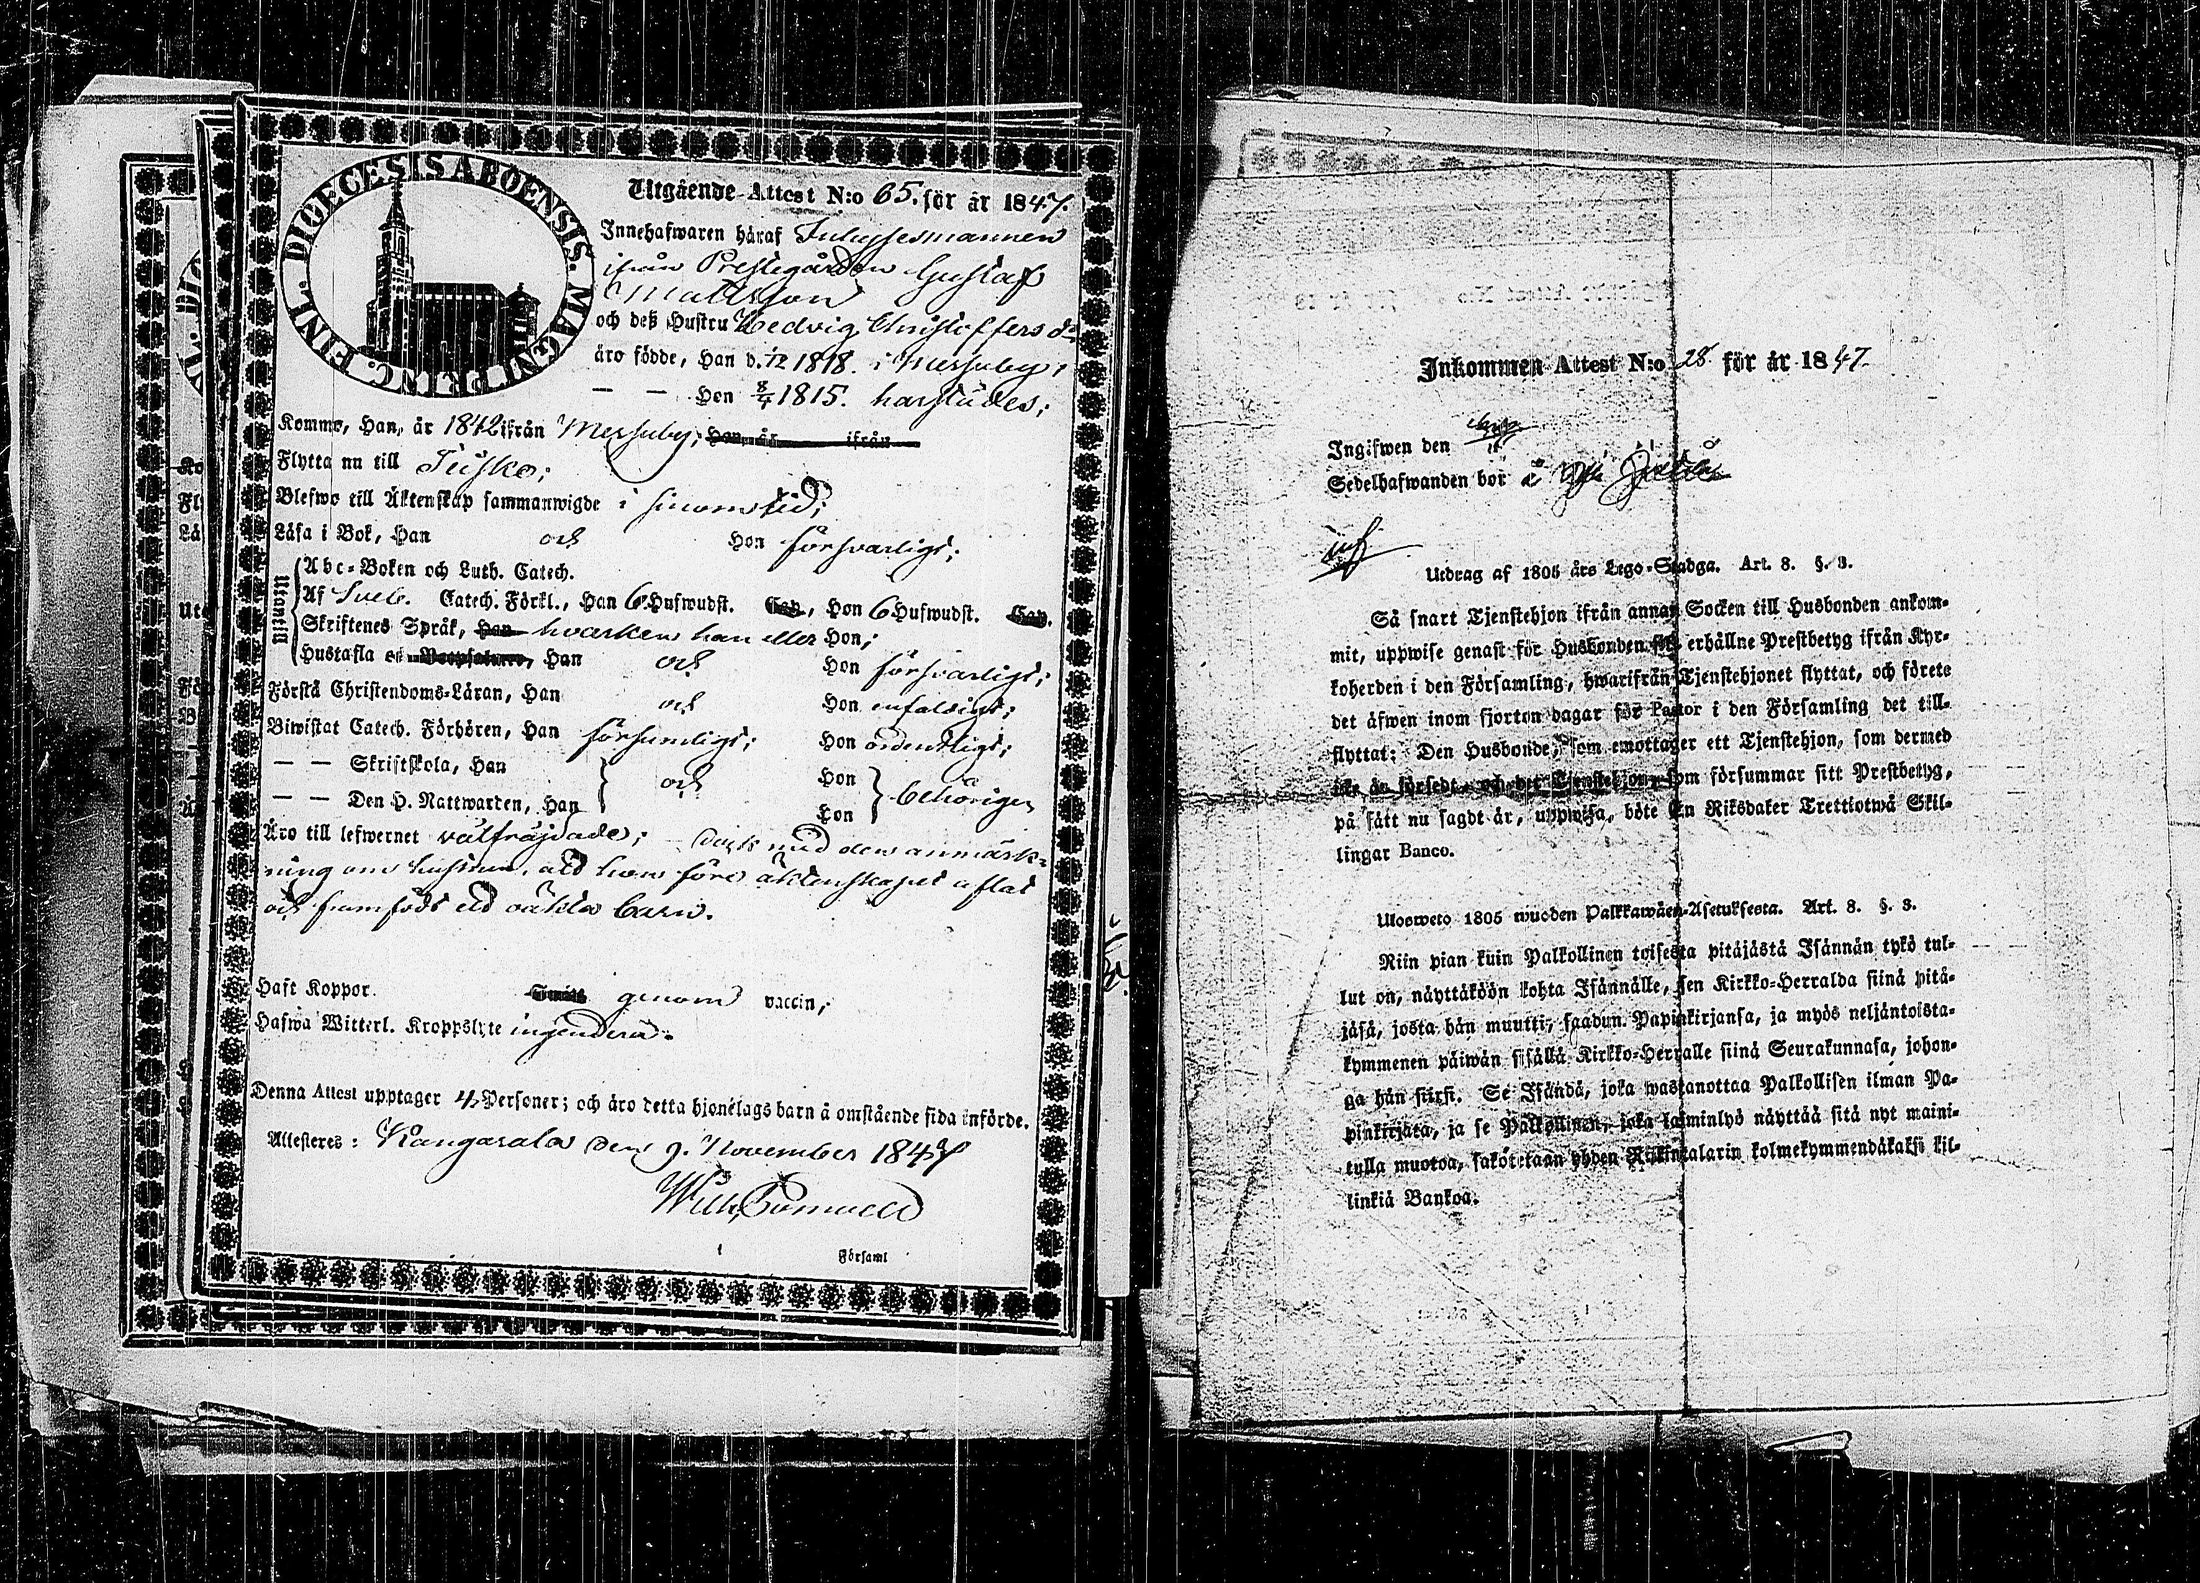 DIOECESIS ABOENSIS. MAGNI PRINC. FINL.
Utgående Attest N:o 65. för år 1847.
Innehafwaren häraf Inhysesmannen
ifrån Prestegården Gustaf
Mattsson
och deß Hustru Hedvig Christoffersdr
äro födde, Han d. 1818. i Messuby,
— — Hon 1815. harstädes;
Kommo, Han, år 1842 ifrån Messuby; Hon, år ifrån
Flytta nu till
Blefwo till Äktenskap sammanwigde i sinom tid;
Läsa i Bok, Han och Hon försvarligt;
Utantill
Abc-Boken och Luth. Catech.
Af Sveb. Catech. Förkl., Han 6 Hufwudst. Cap., Hon 6 Hufwudst. Cap.
Skriftenes Språk, Han hvarken han eller Hon;
Hustafla Han och Hon försvarligt;
Förstå Christendoms-Läran, Han och Hon enfaldigt;
Biwistat Catech. Förhören, Han försumligt; Hon ordentligt;
— — Skriftskola, Han och Hon behörigen
— — Den H. Nattwarden, Han Hon
Äro till lefwernet välfräjdade; dock med den anmärk-
ning om hustrun, att hon före äktenskapet aflat
och framfödt ett oäkta barn.
Haft Koppor genom vaccin;
Hafwa Witterl. Kroppslyte ingendera.
Denna Attest upptager 4 Personer; och äro detta hjonelags barn å omstående sida införde.
Attesteres: Kangasala den 9. November 1847
Församl
Inkommen Attest N:o 28. för år 1847.
Ingifwen den
Sedelhafwanden bor i
Utdrag af 1805 års Lego-Stadga. Art. 8. §. 3.
Så snart Tjenstehjon ifrån annan Socken till Husbonden ankom-
mit, uppwise genast för Husbonden sitt erhållne Prestbetyg ifrån Kyr-
koherden i den Församling, hwarifrån Tjenstehjonet flyttat, och förete
det äfwen inom fjorton dagar för Pastor i den Församling det till-
flyttat: Den Husbonde, som emottager ett Tjenstehjon, som dermed
icke är försedt, och det Tjenstehjon, som försummar sitt Prestbetyg,
på sätt nu sagdt är, uppwisa, böte En Riksdaler Trettiotwå Skil-
lingar Banco.
Ulosweto 1805 wuoden Palkkawäen-Asetuksesta. Art. 8. §. 3.
Niin pian kuin Palkollinen toisesta pitäjästä Isännän tykö tul-
lut on, näyttäköön kohta Isännälle, sen Kirkko-Herralda siinä pitä-
jäsä, josta hän muutti, saadun Papinkirjansa, ja myös neljäntoista-
kymmenen päiwän sisällä Kirkko-Herralle siinä Seurakunnasa, johon-
ga hän siirsi. Se Isändä, joka wastanottaa Palkollisen ilman Pa-
pinkirjata, ja se Palkollinen, joka laiminlyö näyttää sitä nyt maini-
tulla muotoa, sakötetaan yhden Riikintalarin kolmekymmendäkaksi kil-
linkiä Bankoa.